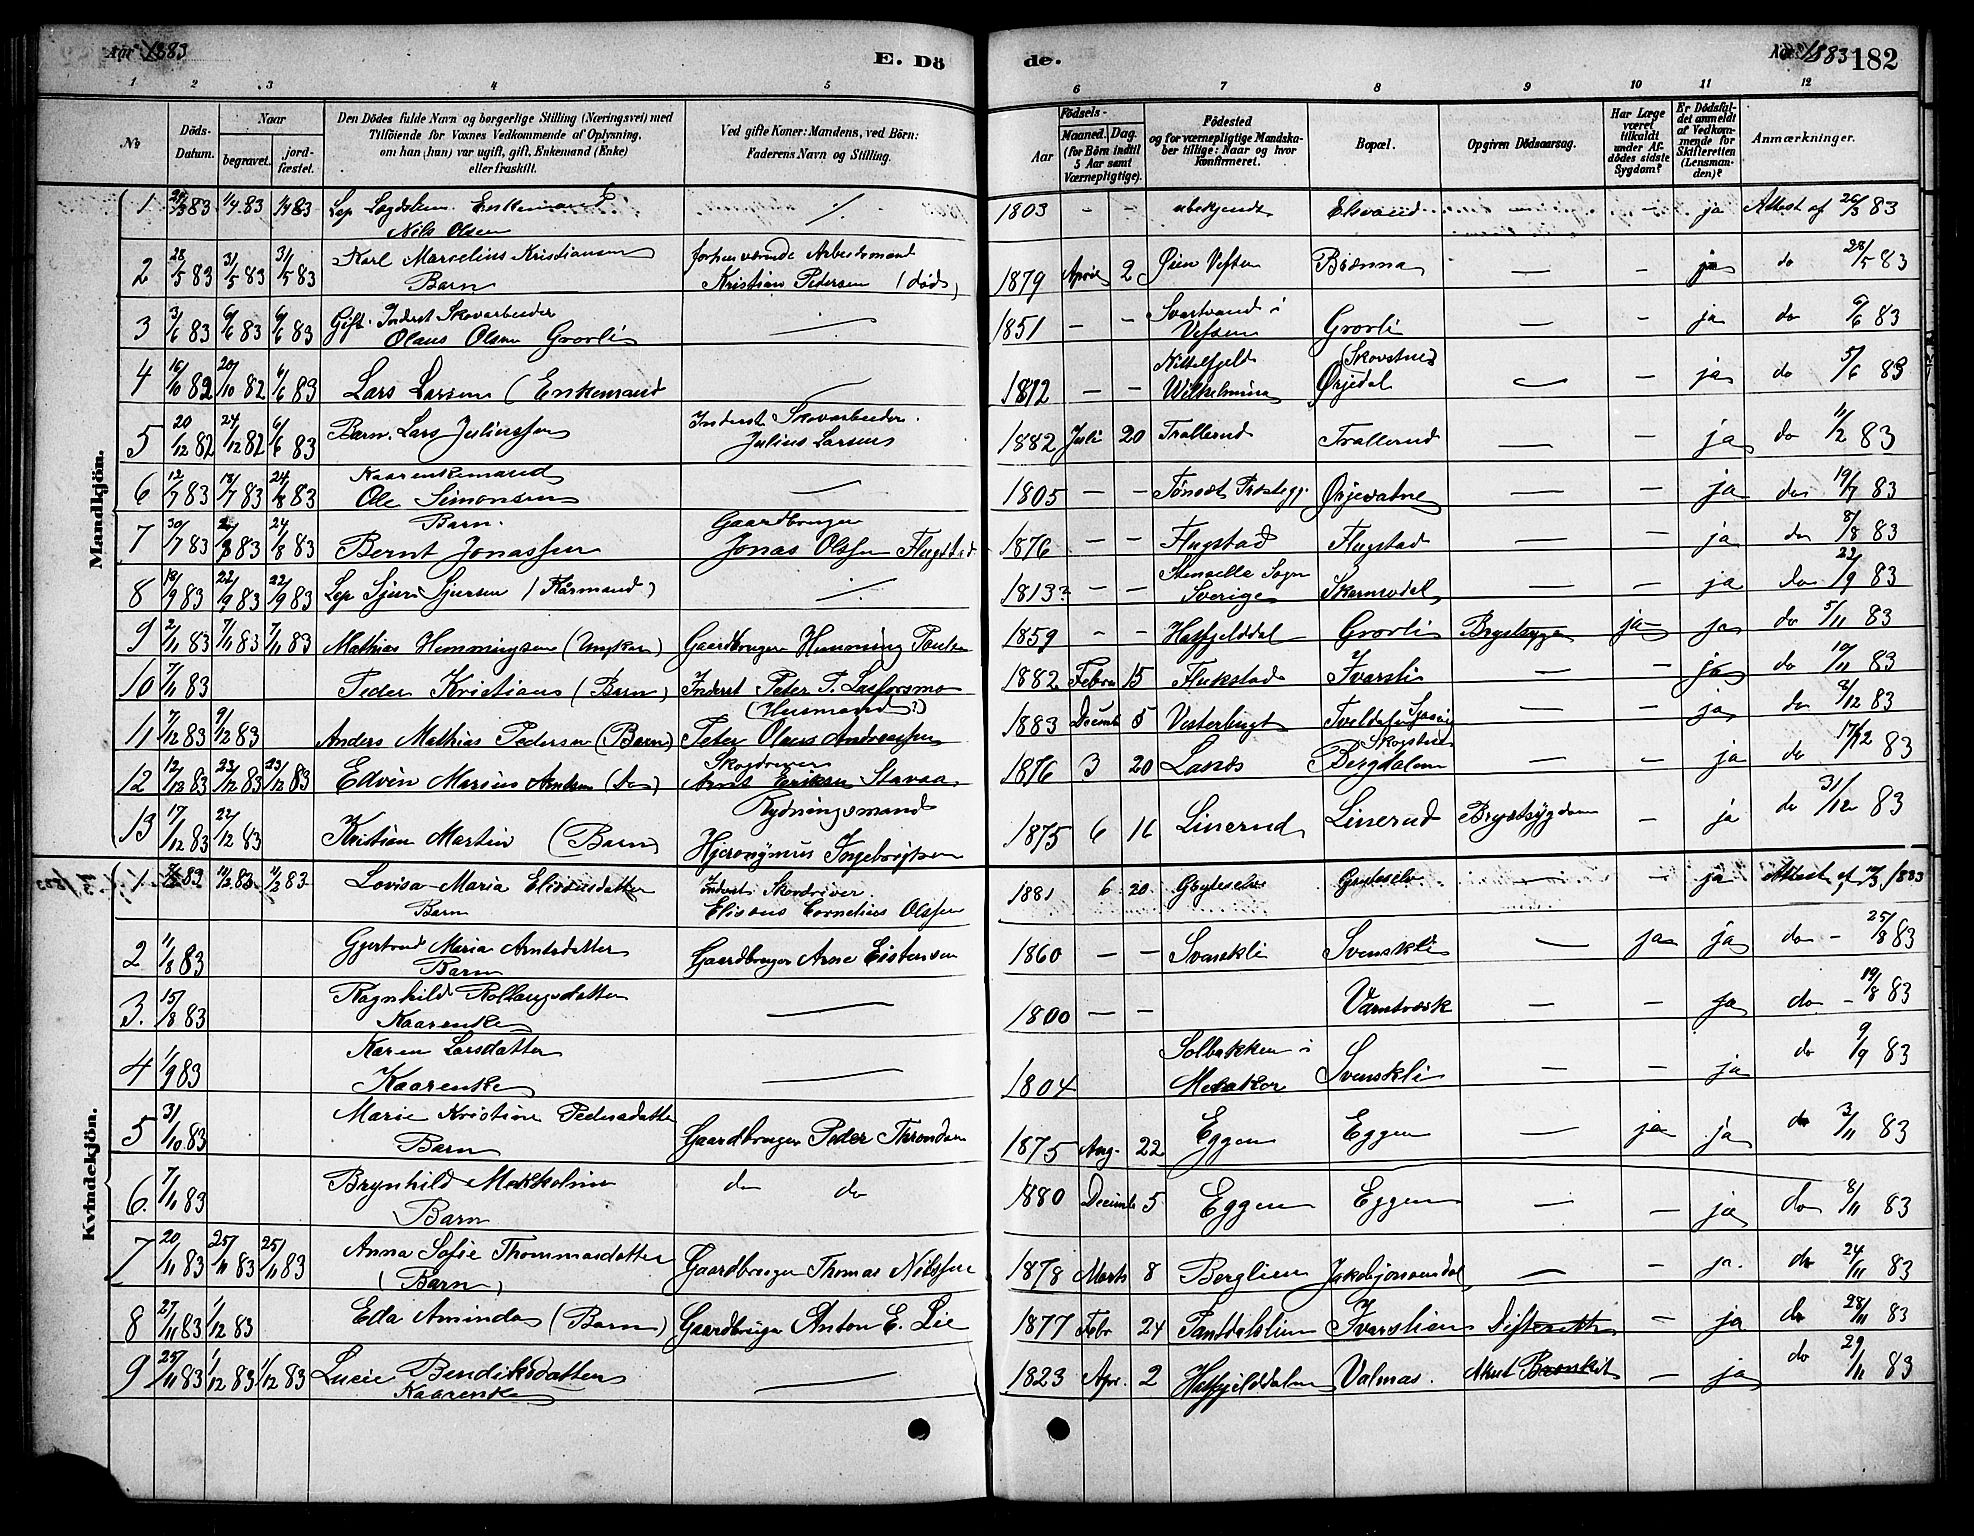 Aar 1883
E. Dö
de.
Aar 1883 182
1 2 3 4 5 6 7 8 9 10 11 12
No
Döds-Datum.
Naar
begravet.
jord-fæstet.
Den Dödes fulde Navn og borgerlige Stilling (Næringsvei) med
Tilföiende for Voxnes Vedkommende af Oplysning,
om han (hun) var ugift, gift, Enkemand (Enke)
eller fraskilt.
Ved gifte Koner: Mandens, ved Börn:
Faderens Navn og Stilling.
Födsels-
Aar
Maaned. Dag.
(for Börn indtil
5 Aar samt
Værnepligtige).
Födested
og for værnepligtige Mandska-
ber tillige: Naar og hvor
konfirmeret.
Bopæl.
Opgiven Dödsaarsag.
Har Læge
været
tilkaldt
under Af-
dödes sidste
Sygdom?
Er Dödsfal-
det anmeldt
af Vedkom-
mende for
Skifteretten
(Lensman-
den)?
Anmærkninger.
Mandkjön.
1 83 1/4 83 1/4 83 Lap Enkemand Nils Olsen ./. 1803 – – ubekjendt – – ja Attest af 26/3 83
2 28/5 83 31/5 83 31/5 83 Karl Marselius Kristiansen Barn forhenværende Arbeidsmand Kristian Pedersen (død) 1879 April 2 Øien Vefsen – – ja do 28/5 83
3 3/6 83 6/6 83 6/6 83 Gift. Inderst Skovarbeider Olaus Olsen Grovli – 1851 – – Svartvand i Vefsen Grovli – – ja do 6/6 83
4 16/10 82 20/10 82 6/6 83 Lars Larsen (Enkemand – 1812 – – Kittelfjeld Wilhelmina Ørjedal – – ja do 5/6 83
5 20/12 82 24/12 82 6/6 83 Barn. Lars Juliussen Inderst Skovarbeider. Julius Larsen 1882 Juli 20 Trallerud Trallerud – – ja do 11/2 83
6 12/7 83 18/7 83 24/8 83 Kaarenkemand Ole Simonsen – 1805 – – Tønset Ørjevatne – – ja do 19/7 83
7 30/7 83 83 24/8 83 Barn. Bernt Jonassen Gaardbruger Jonas Olssen Flugstad 1876 – – Flugstad Flugstad – – ja do 8/8 83
8 19/9 83 22/9 83 22/9 83 Lap Sjur Sjursen (Kårmand) ./. 1813? – – Stensele Sogn Sverige Skarmodal – – ja do 22/9 83
9 2/11 83 7/11 83 7/11 83 Mathias Hemmingsen (Ungkar) Gaardbruger Hemming Paulsen 1859 – – Hatfjelddal Grovli Brystsyge ja ja do 5/11 83
10 7/11 83 Peder Kristian (Barn) Inderst Peter P. Laxforsmo (Husmand?) 1882 Febru 15 Flukstad Ivarsli – – ja do 10/11 83
11 7/12 83 9/12 83 Anders Mathias Pedersen (Barn) Peter Olaus Andreassen 1883 Decemb 5 Vesterbugt – – ja do 8/12 83
12 12/12 83 23/12 83 23/12 83 Edvin Marius Arntsen (do) Skogdriver Arnt Eriksen Stavaa 1876 3 20 Lanæs Bergdalen – – ja do 17/12 83
13 17/12 83 22/12 83 Kristian Martin (Barn) Rydningsmand Hjeronymus Ingebrigtsen 1875 6 16 Linerud Linerud Brystsygdom – ja do 31/12 83
Kvindekjön.
1 83 11/3 83 11/3 83 Lovisa Maria Eliseusdatter Barn Inderst Skovdriver Eliseus Cornelius Olssen 1881 6 20 Gryteselv Grytselv – – ja Attest af 1883
2 11/8 83 Gjertrud Maria Arntsdatter Barn Gaardbruger Arne Eistensen 1860 – – Svenskli Svenskli – ja ja do – 25/8 83
3. 15/8 83 Ragnhild Kaarenke – 1800 – – Varntresk – – ja do – 19/8 83
4 1/9 83 Karen Larsdatter Kaarenke – 1804 Solbakken i Meraker Svenskli ja do 9/9 83
5 31/10 83 Marie Kristine Pedersdatter Barn Gaardbruger Peder Throndsen 1875 Aug. 22 Eggen Eggen – ja ja do 3/11 83
6. 7/11 83 Brynhild Barn do do 1880 Decemb 5 Eggen Eggen – – ja do 8/11 83
7 20/11 83 25/11 83 25/11 83 Anna Sofie Thommasdatter (Barn) Gaardbruger Thomas Nilssen 1878 Marts 8 Berglien Jakobjonsendal – – ja. do 24/11 83
8 27/11 83 1/12 83 Eda Aminda (Barn) Gaardbruger Anton E. Lie 1877 Febr 24 Panddalslien Ivarslien Difteritt – ja do 28/11 83
9 25/11 83 1/12 83 1/12 83 Lucie Bendiksdatter Kaarenke – 1823 Apr. 2 Hatfjelddalen Valmas. Akut Bronkit – ja do 29/11 83